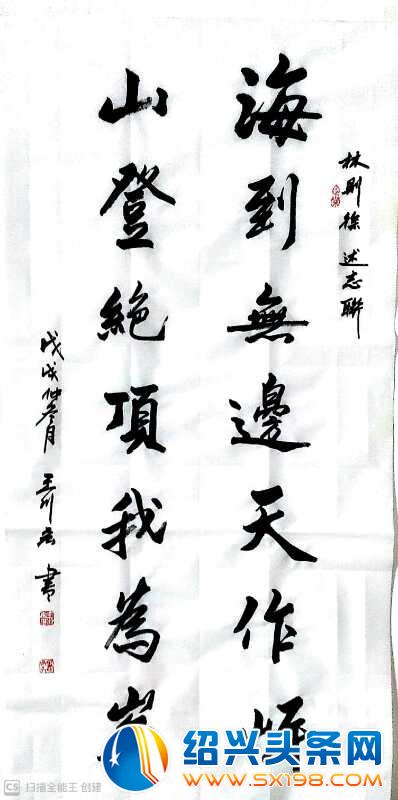 林則徐 述志聯
海到無邊天作
山登絶項我為
戊戌仲冬月 王川 書
绍兴头条网
WWW.SX198.COM
CS 扫描全能王 创建